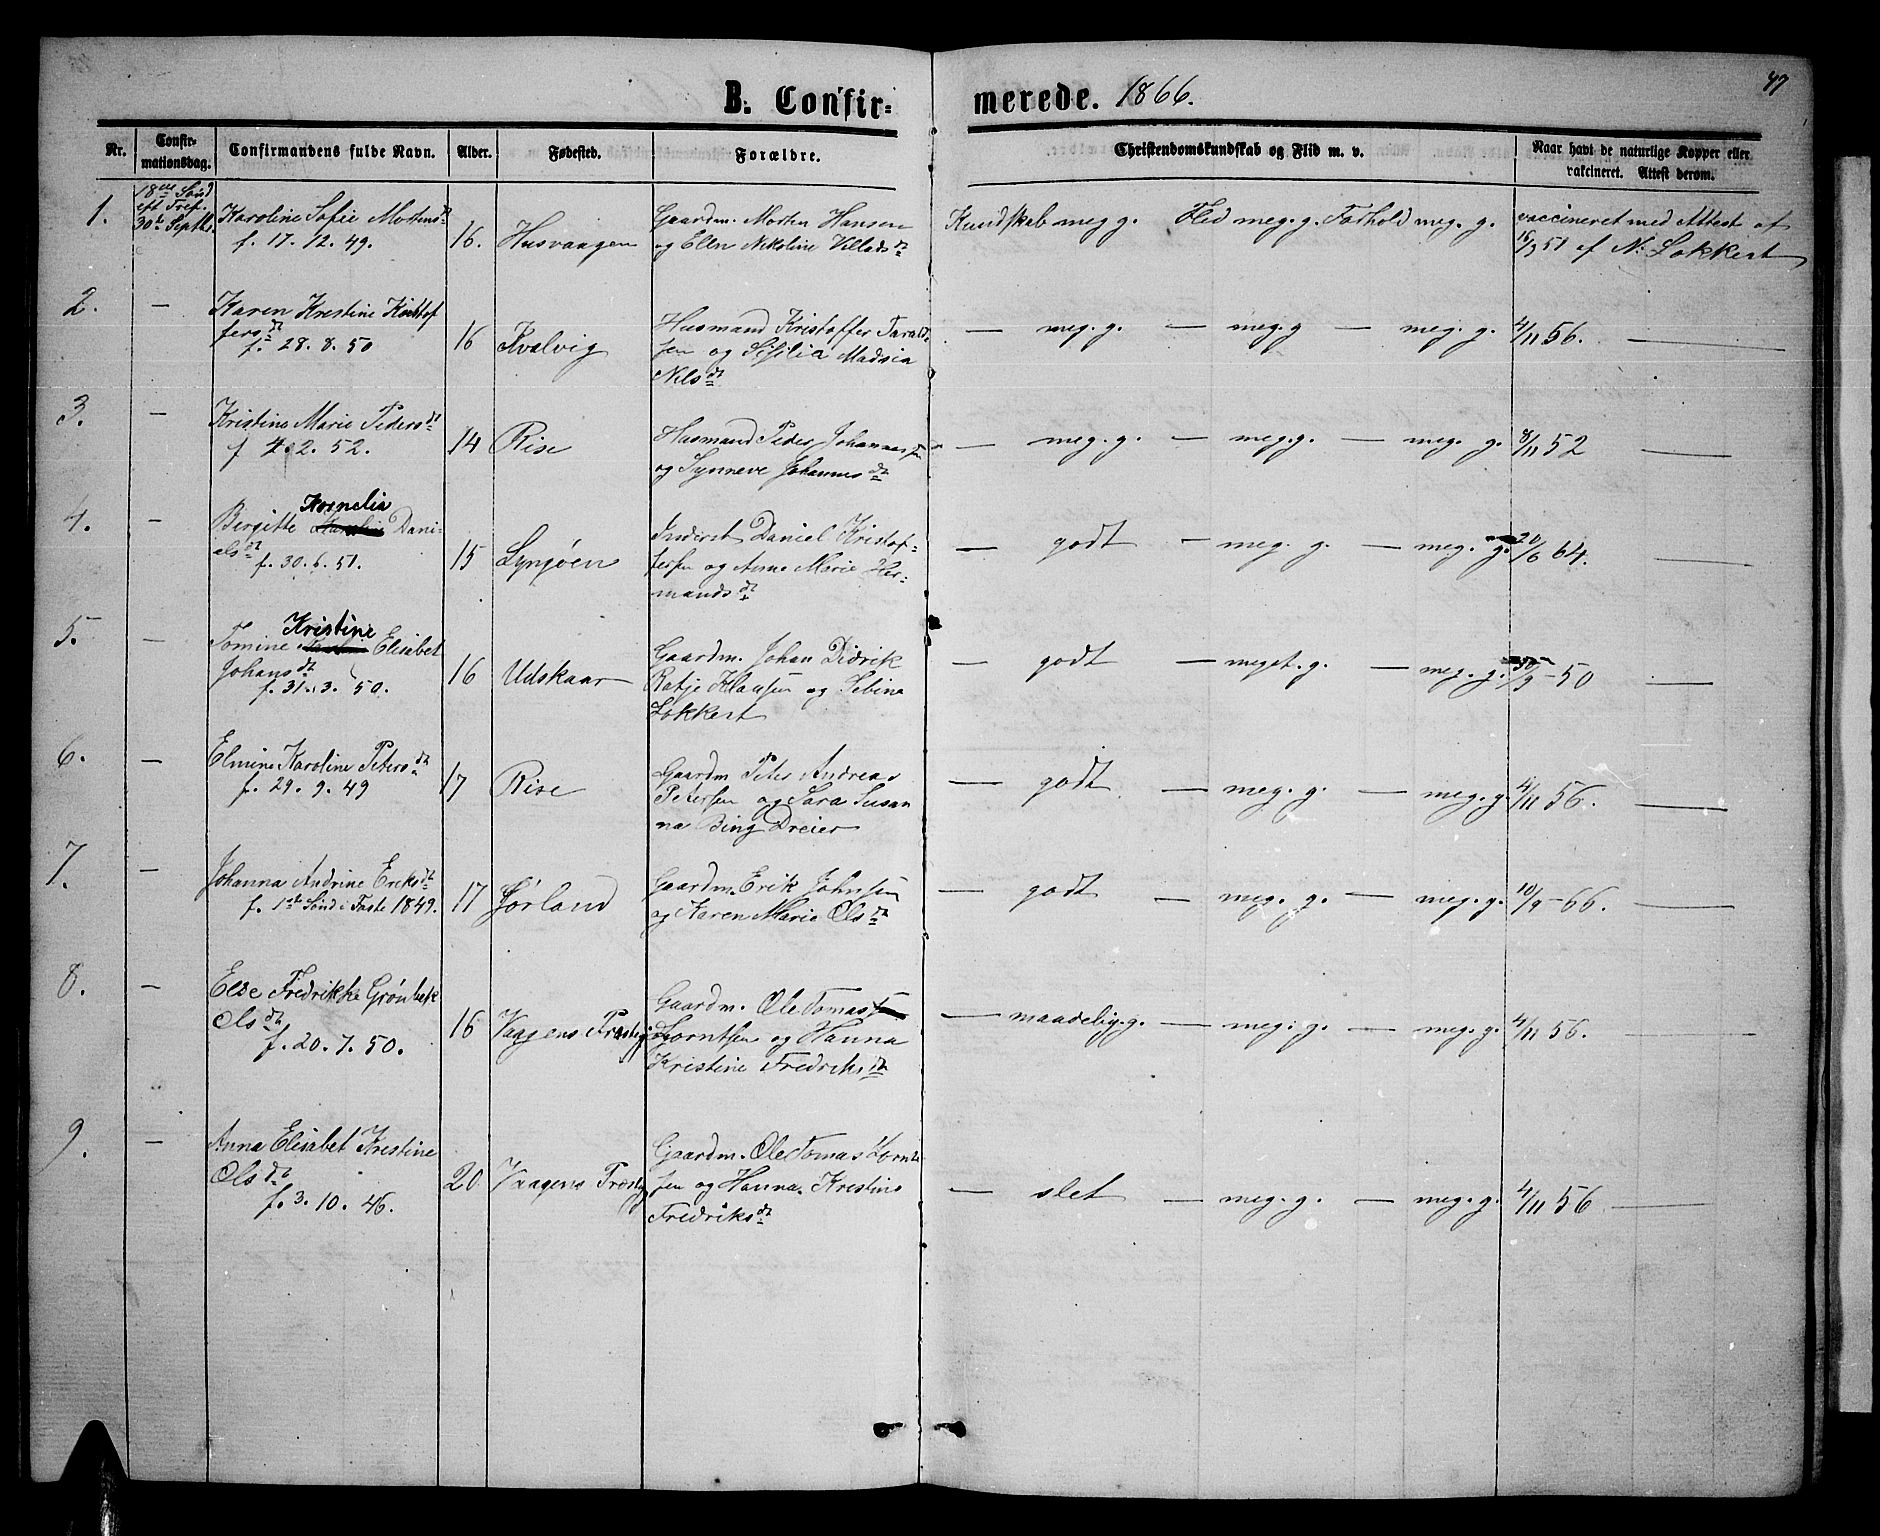 47
B. Confirmerede. 1866.
Nr. Confirmationsdag. Confirmandens fulde Navn. Alder. Fødested. Forældre. Christendomskundskab og Flid m. v. Naar havt de naturlige Kopper eller vakcineret. Attest derom.
1. 18de Sønd eft Tref. 30te Septbr. Karoline Sofie Mortensdt
f. 17. 12. 49. 16. Husvaagen
Gaardm. Morten Hansen
og Ellen Nikoline Villadsdt
Kundskab meg g. Flid meg. g. Forhold meg. g.
vaccineret med Attest af
16/9 51 af N. Lokkert
2. — Karen Krestine Kristof
fersdt
f. 28. 8. 50 16 Kvalvig
Husmand Kristoffer Tarald
sen og Sisilia Madsia
Nilsdt
— meg. g. — meg. g — meg. g. 4/11 56. —
3. — Kristine Marie Pedersdt
f 4. 2. 52. 14 Rise
Husmand Peder Johannessen
og Synneve Johannesdt
— meg. g. — meg. g. — meg. g. 8/11 52 —
4. — Kornelia
Birgitte Dani-
elsdt
f. 30. 6. 51. 15 Lynjøen
Inderst Daniel Kristof-
fersen og Anne Marie Her-
mandsdt
— godt — meg. g. — meg. g. 20/6 64. —
5. — Kristine
Tomine Elisabet
Johansdt
f. 31. 3. 50. 16 Udskaar
Gaardm. Johan Didrik
Ratje Klausen og Sebina
Lokkert
— godt — meget. g. — meg. g. 30/9 - 50 —
6. — Elmine Karoline Petersdt
f. 29. 9. 49 17 Rise
Gaardm Peter Andreas
Petersen og Sara Susan
na Bing Dreier
— godt — meg. g. — meg. g. 4/11 56. —
7. — Johanna Andrine Eriksdt
f. 1ste Sønd i Faste 1849. 17 Sørland
Gaardm. Erik Johnsen
og Karen Marie Olsdt
— godt — meg. g. — meg. g. 10/9 - 66. —
8. — Else Fredrikke Grønbek
Olsdt
f. 20. 7. 50. 16 Vaagens Præstegj
Gaardm. Ole Tomas
Lorntsen og Hanna
Kristine Fredriksdt
— maadelig. g. — meg. g. — meg. g. 4/11 56. —
9. — Anna Elisabet Krestine
Olsdt
f. 3. 10. 46. 20 Vaagens Præstegj
Gaardm. Ole Tomas Lornt
sen og Hanna Krestine
Fredriksdt
— slet — meg. g. — meg. g. 4/11 56 —